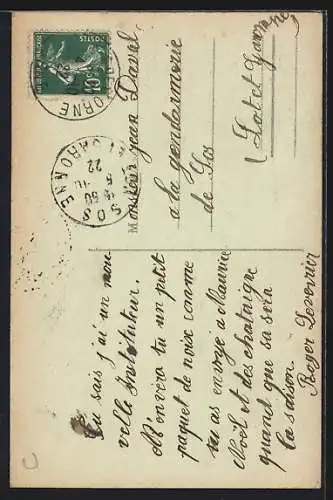 POSTES
10
SOS
LOT-ET-GARONNE
22
Monsieur jean Daval
a la gendarmerie
de Sos
(Lot et Garonne)
Tu sais j'ai un nou
velle Instituteur.
M'envera tu un ptit
paquet de noix comme
tu as envoyé a Maurice
Noël et des chataigne
quand que sa sera
la saison.
Roger